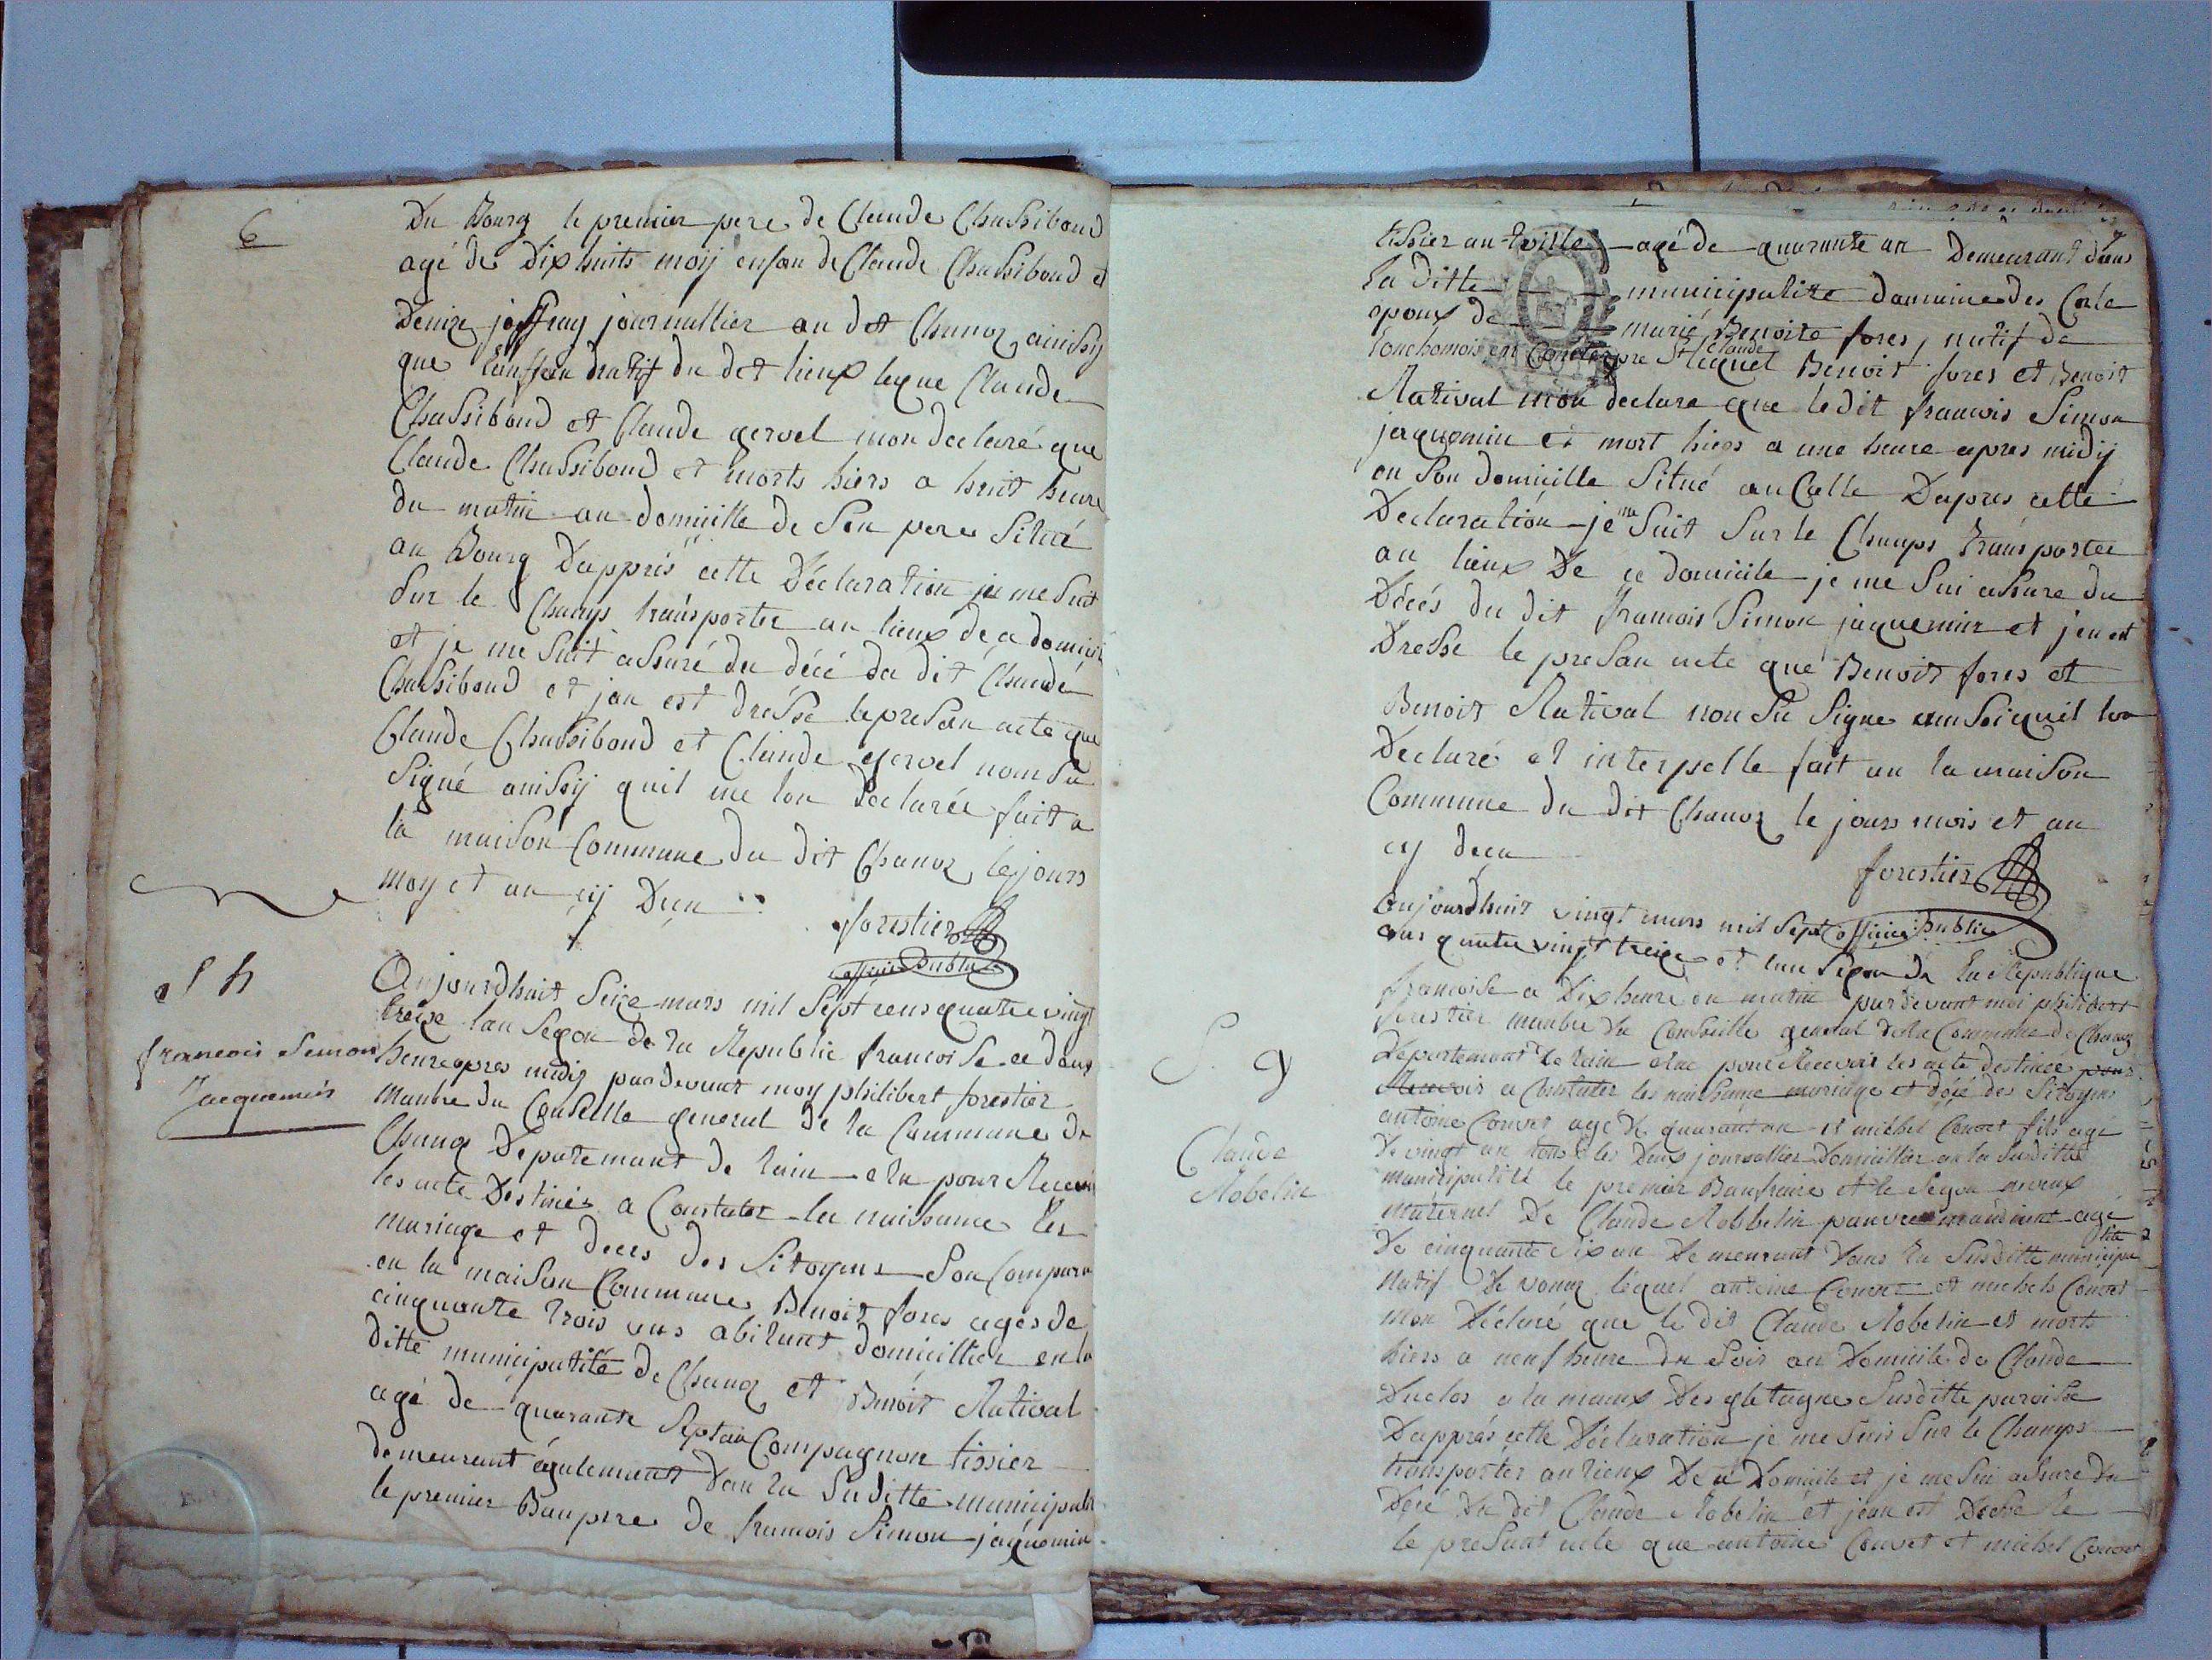 6
Du Bourg le premier pere de Claude Chassiboud
agé de dix huits moij enfan de Claude Chassiboud et
Denize joffray journallier au dit Chanoz ainissij
que lanffan natif du dit lieux leque Claude
Chassiboud et Claude gervel mon declaré que
Claude Chassiboud et morts hiers a huit heure
du matin au domicille de Son pere Situé
au Bourg Dapprés cette Déclaration je me Suit
Sur le Champs transporter au lieux de ce domicil
et je me Suit assuré du décé du dit Claude
Chassiboud et jan est drésse le presan acte que
Claude Chassiboud et Claude gervel nom Su
Signé ainissij quil me lon declarée fait a
la maison Commune du dit Chanoz le jours
moy et an cij Deçu
forestier
officier Public
S h
francois Simon
Jacquemin
Aujourdhuit Seize mars mil Sept cens quatre vingt
treize lan Segon de la Republic francoise a deux
heure apres midij pardevant moy philibert forestier
manbre du Conseille general de la Commune de
Chanoz Departemant de lain elu pour Recevoir
les acte Destinés a Constater les naissance les
mariage et deces des Sitoyens Son Compara
en la maison Commune Benoit fores agés de
cinquante trois ans abitant domicillier en la
ditte municipalité de Chanoz et Benoit Rativat
agé de quarante Sept an Compagnon tissier
demeurant égalemant dan la Suditte municipalit
le premier Baupere de francois Simon jaquemin
tissier an toille agé de quarante an Demeurant dans
la Ditte municipalite domaine des Cole
epoux de marié Benoite fores, natif de
lonchomois en Comte pre St Claude
lequel Benoit fores et Benoit
Rativat mon declare que le dit francois Simon
jaquemin et mort hiers a une heure apres midij
en Son domicille Situé au Colle Dapres cette
Declaration je me Suit Sur le Champs transporter
au lieux De ce domicile je me Sui assure du
Décés du dit francois Simon jaquemin et jen est
Dresse le presan acte que Benoit fores et
Benoit Rativat non Su Signe ainsi quil lon
Declaré et interpelle fait an la maison
Commune du dit Chanoz le jours mois et an
cij deçu
forestier
officier Public
Aujourdhuit vingt mars mil Sept
cens quatre vingt treize et lan Segon de la Republique
francoise a Dix heure du matin pardevant moi philibert
forestier manbre du Conseille general de la Commune de Chanoz
Departemant de lain elue pour Recevoir les acte destinée pour
Recevoir a Constater les naissance mariage et décé des Sitoyens
antoine Convert agé de quarant an et michel Convert fils age
De vingt an tous les deux journallier Domicillier en la Suditte
municipalité le premier Baufraire et le Segon neveux
S. 9
Claude
Robelin
maternel De Claude Robbelin pauvre mandiant agé
De cinquante Six an Demeurant dans la Susditte municipalité
Natif de vonnaz lequel antoine Convert et michels Convert
mon Déclaré que le dit Claude Robelin et morts
hiers a neuf heure du Soir au Domicile de Claude
Duclos a la Susditte paroisse
Dapprés cette Déclaration je me Suis Sur le Champs
transportér au lieux De ce Domicile et je me Sui assure du
Décé du dit Claude Robelin et jean est Dresse le
le presant acte que antoine Convet et michel Convert